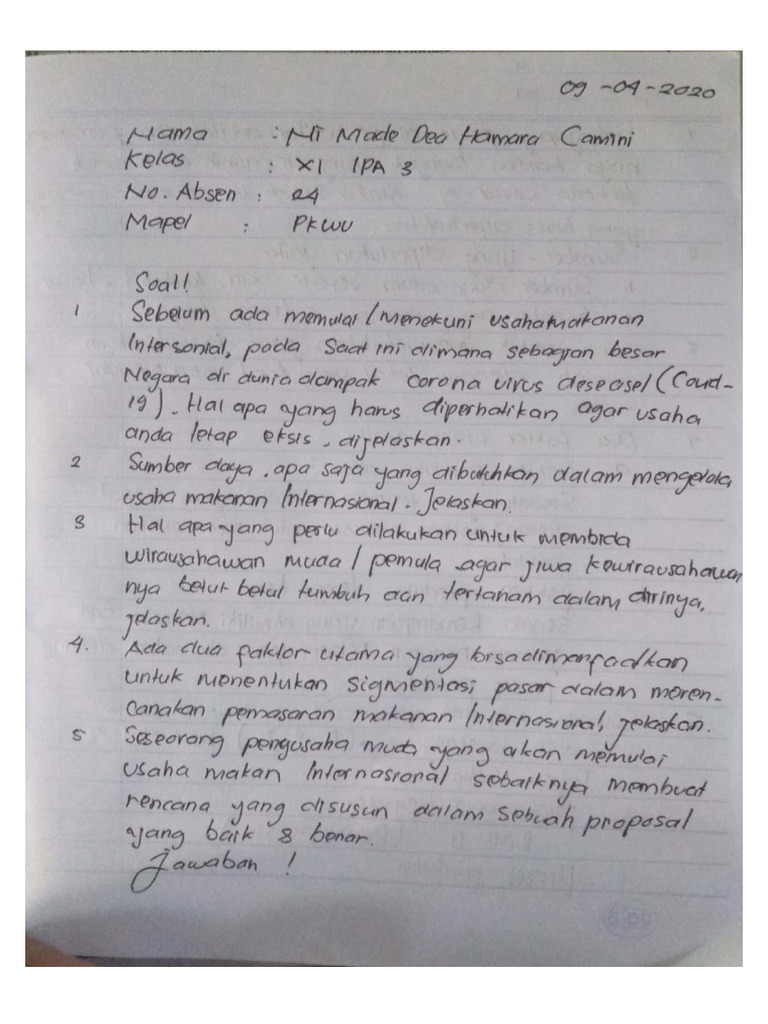 09-04-2020
Nama : Ni Made Dea Hamara Camini
Kelas : XI IPA 3
No. Absen : 24
Mapel : PKWU
Soal!
1 Sebelum ada memulai/Menekuni usaha makanan
Intersonial, pada Saat ini dimana sebagian besar
Negara di dunia dampak corona virus deseasel (Covid-
19). Hal apa yang harus diperhatikan agar usaha
anda tetap eksis. dijelaskan.
2 Sumber daya. apa saja yang dibutuhkan dalam mengelola
usaha makanan Internasional. Jelaskan.
3 Hal apa yang perlu dilakukan untuk membida
wirausahawan muda / pemula agar jiwa kewirausahawan
nya betul betul tumbuh dan tertanam dalam dirinya.
jelaskan.
4. Ada dua faktor utama yang bisa dimanfaatkan
untuk menentukan sigmentasi pasar dalam meren-
canakan pemasaran makanan Internasional, jelaskan.
5 Seseorang pengusaha muda yang akan memulai
usaha makan Internasional sebaiknya membuat
rencana yang disusun dalam sebuah proposal
yang baik & benar.
Jawaban !